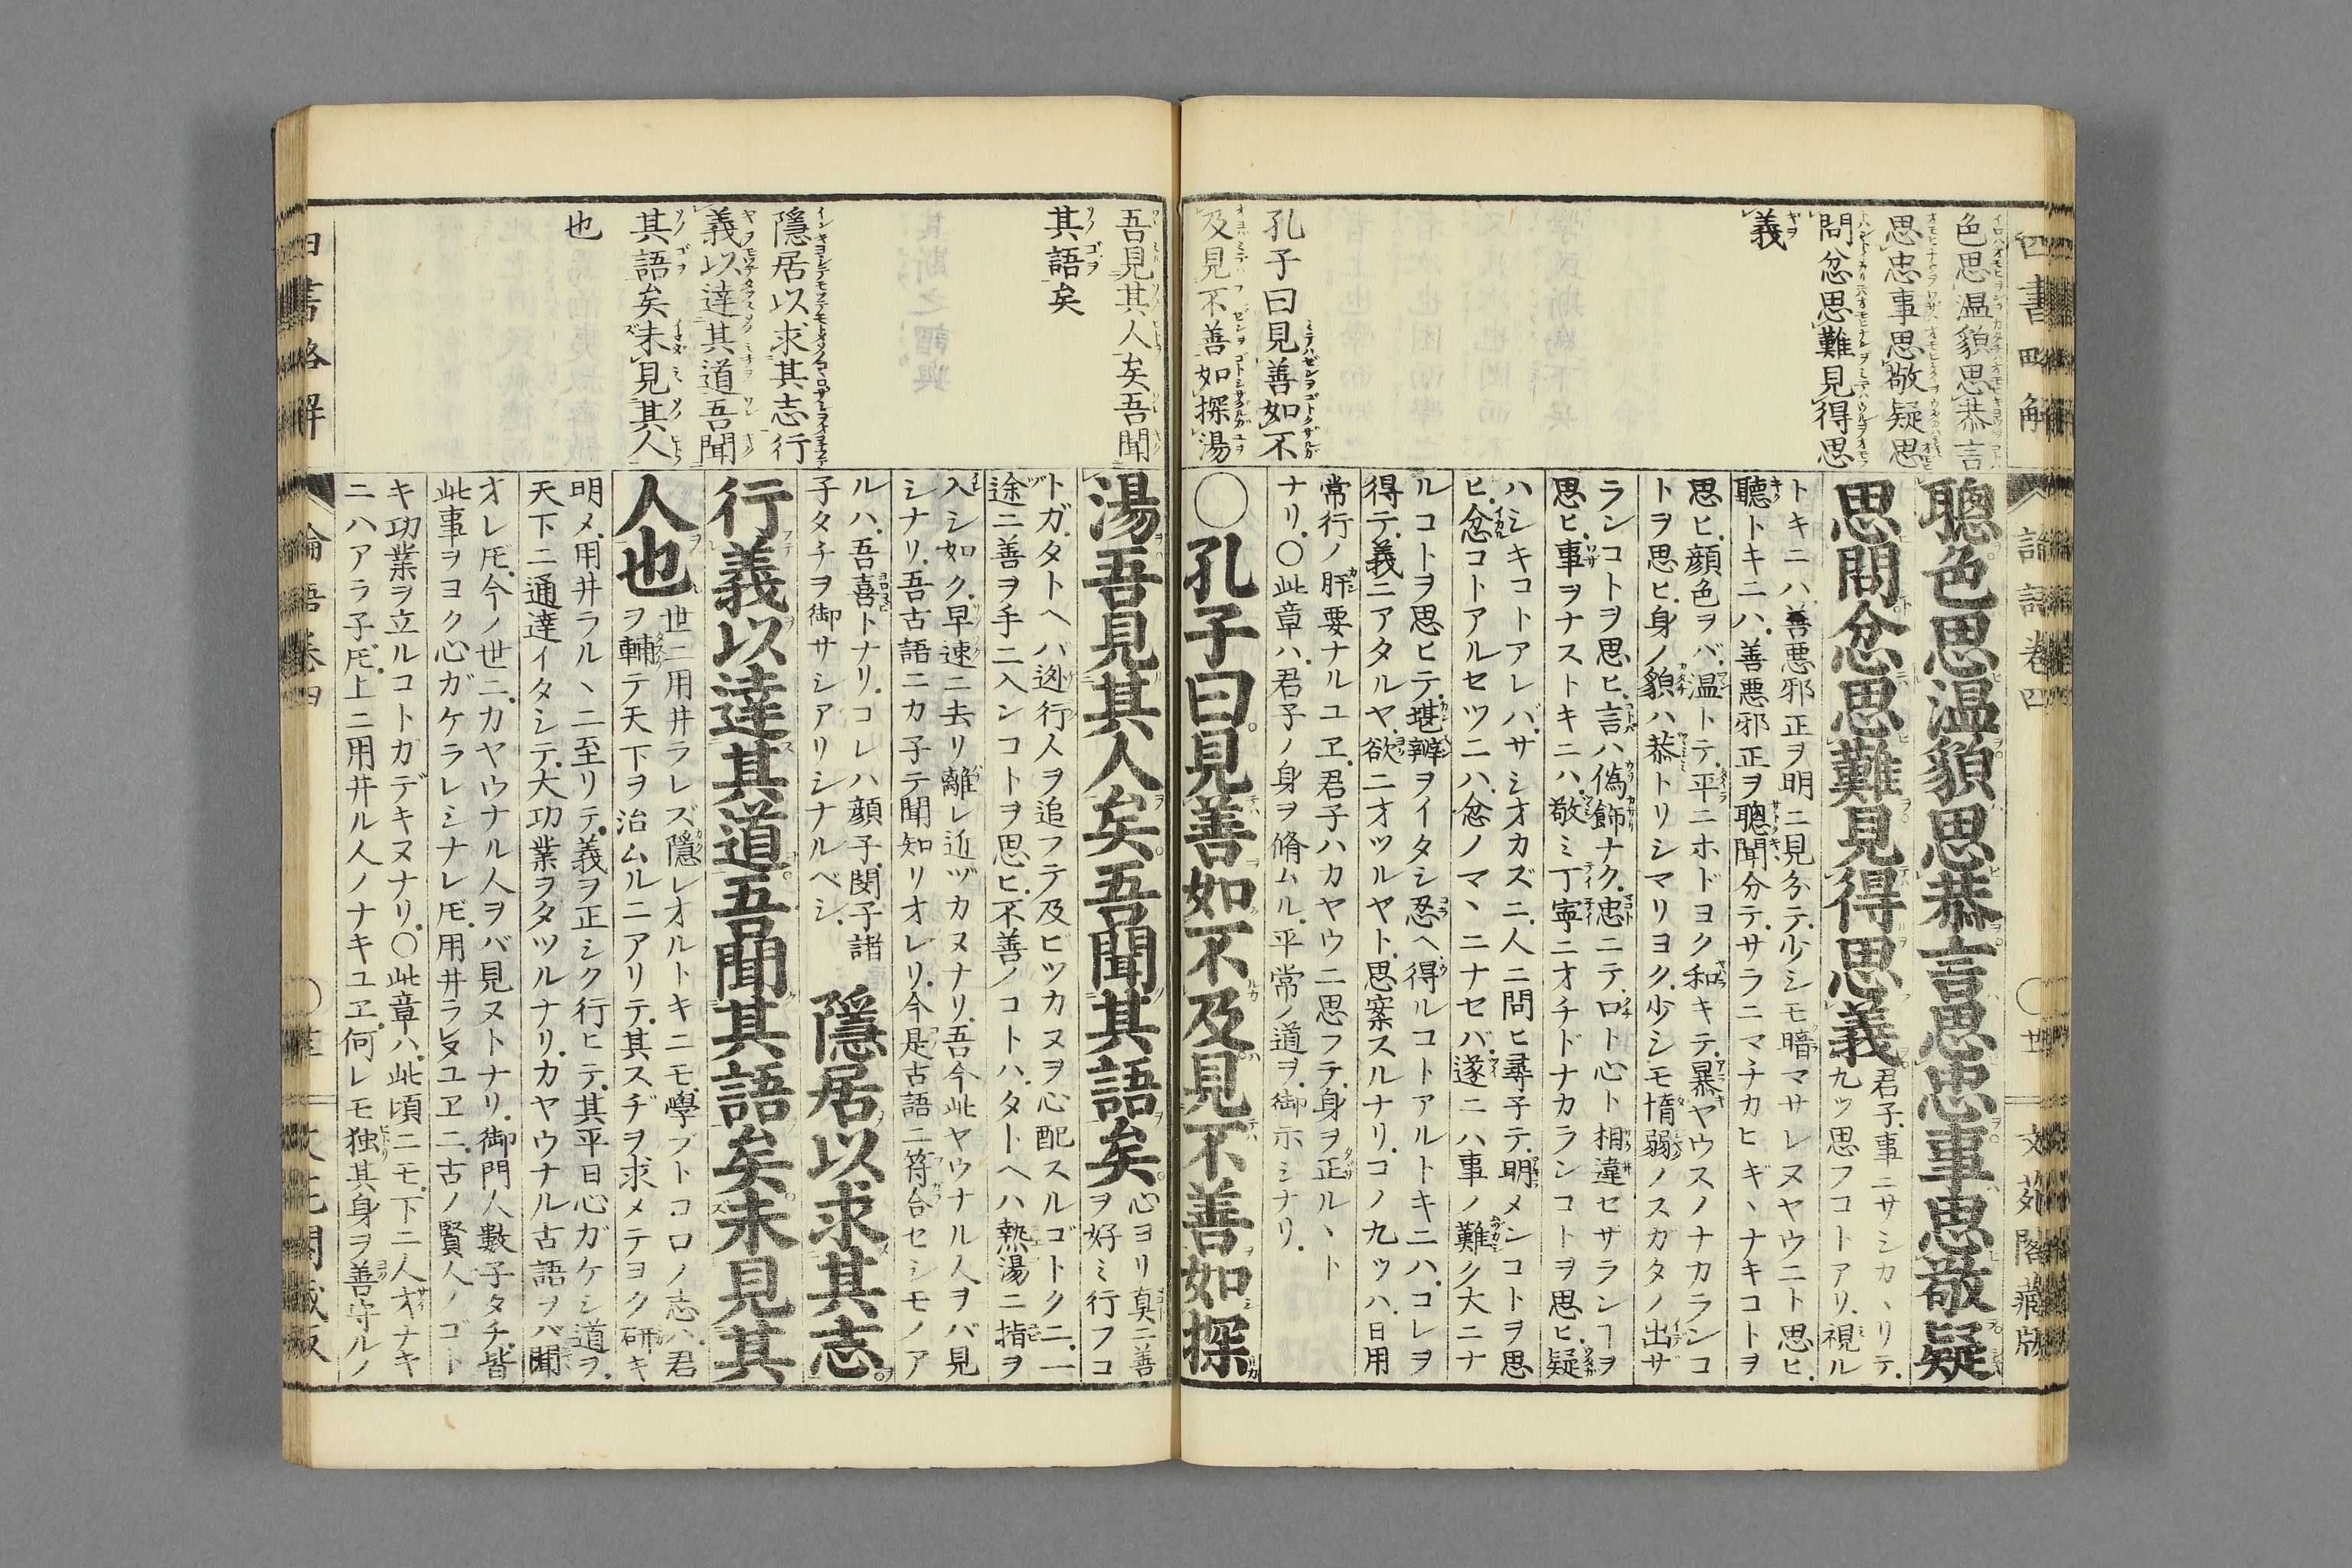 色思温貌思恭言
思忠事思敬疑思
問忿思難見得思
義
孔子曰見善如不
及見不善如探湯
聰色思温貌思恭言思忠事思敬疑
思問忿思難見得思義
君子事ニサシカヽリテ
九ツ思フコトアリ視ル
トキニハ善悪邪正ヲ明ニ見分テ少シモ暗マサレヌヤウニト思ヒ
聽トキニハ善悪邪正ヲ聰聞分テサラニマチカヒギヽナキコトヲ
思ヒ顔色ヲバ温トテ平ニホドヨク和キテ暴ヤウスノナカランコ
トヲ思ヒ身ノ貌ハ恭トリシマリヨク少シモ惰弱ノスガタノ出サ
ランコトヲ思ヒ言ハ偽飾ナク忠ニテ口ト心ト相違セザランヿヲ
思ヒ事ヲナストキニハ敬ミ丁寧ニオチドナカランコトヲ思ヒ疑
ハシキコトアレバサシオカズニ人ニ問ヒ尋子テ明メンコトヲ思
ヒ忿コトアルセツニハ忿ノマヽニナセバ遂ニハ事ノ難ク大ニナ
ルコトヲ思ヒテ堪辨ヲイタシ忍ヘ得ルコトアルトキニハコレヲ
得テ義ニアタルヤ欲ニオツルヤト思案スルナリコノ九ツハ日用
常行ノ肝要ナルユヱ君子ハカヤウニ思フテ身ヲ正ルヽト
ナリ○此章ハ君子ノ身ヲ脩ムル平常ノ道ヲ御示シナリ
○孔子曰見善如不及見不善如探
吾見其人矣吾聞
其語矣
隱居以求其志行
義以達其道吾聞
其語矣未見其人
也
湯吾見其人矣吾聞其語矣
心ヨリ真ニ善
ヲ好ミ行フコ
トガタトヘバ迯行人ヲ追フテ及ビツカヌヲ心配スルゴトクニ一
途ニ善ヲ手ニ入ンコトヲ思ヒ不善ノコトハタトヘハ熱湯ニ指ヲ
入シ如ク早速ニ去リ離レ近ヅカヌナリ吾今此ヤウナル人ヲバ見
シナリ吾古語ニカ子テ聞知リオレリ今是古語ニ符合セシモノア
ルハ吾喜トナリコレハ顔子閔子諸
子タチヲ御サシアリシナルベシ
隱居以求其志
行義以達其道吾聞其語矣未見其
人也
世ニ用井ラレズ隱レオルトキニモ學ブトコロノ志ハ君
ヲ輔テ天下ヲ治ムルニアリテ其スヂヲ求メテヨク研キ
明メ用井ラルヽニ至リテ義ヲ正シク行ヒテ其平日心ガケシ道ヲ
天下ニ通達イタシテ大功業ヲタツルナリカヤウナル古語ヲバ聞
オレ𪜈今ノ世ニカヤウナル人ヲバ見ヌトナリ御門人數子タチ皆
此事ヲヨク心ガケラレシナレ𪜈用井ラレヌユヱニ古ノ賢人ノゴト
キ功業ヲ立ルコトガデキヌナリ○此章ハ此頃ニモ下ニ人才ナキ
ニハアラ子𪜈上ニ用井ル人ノナキユヱ何レモ独其身ヲ善守ルノ